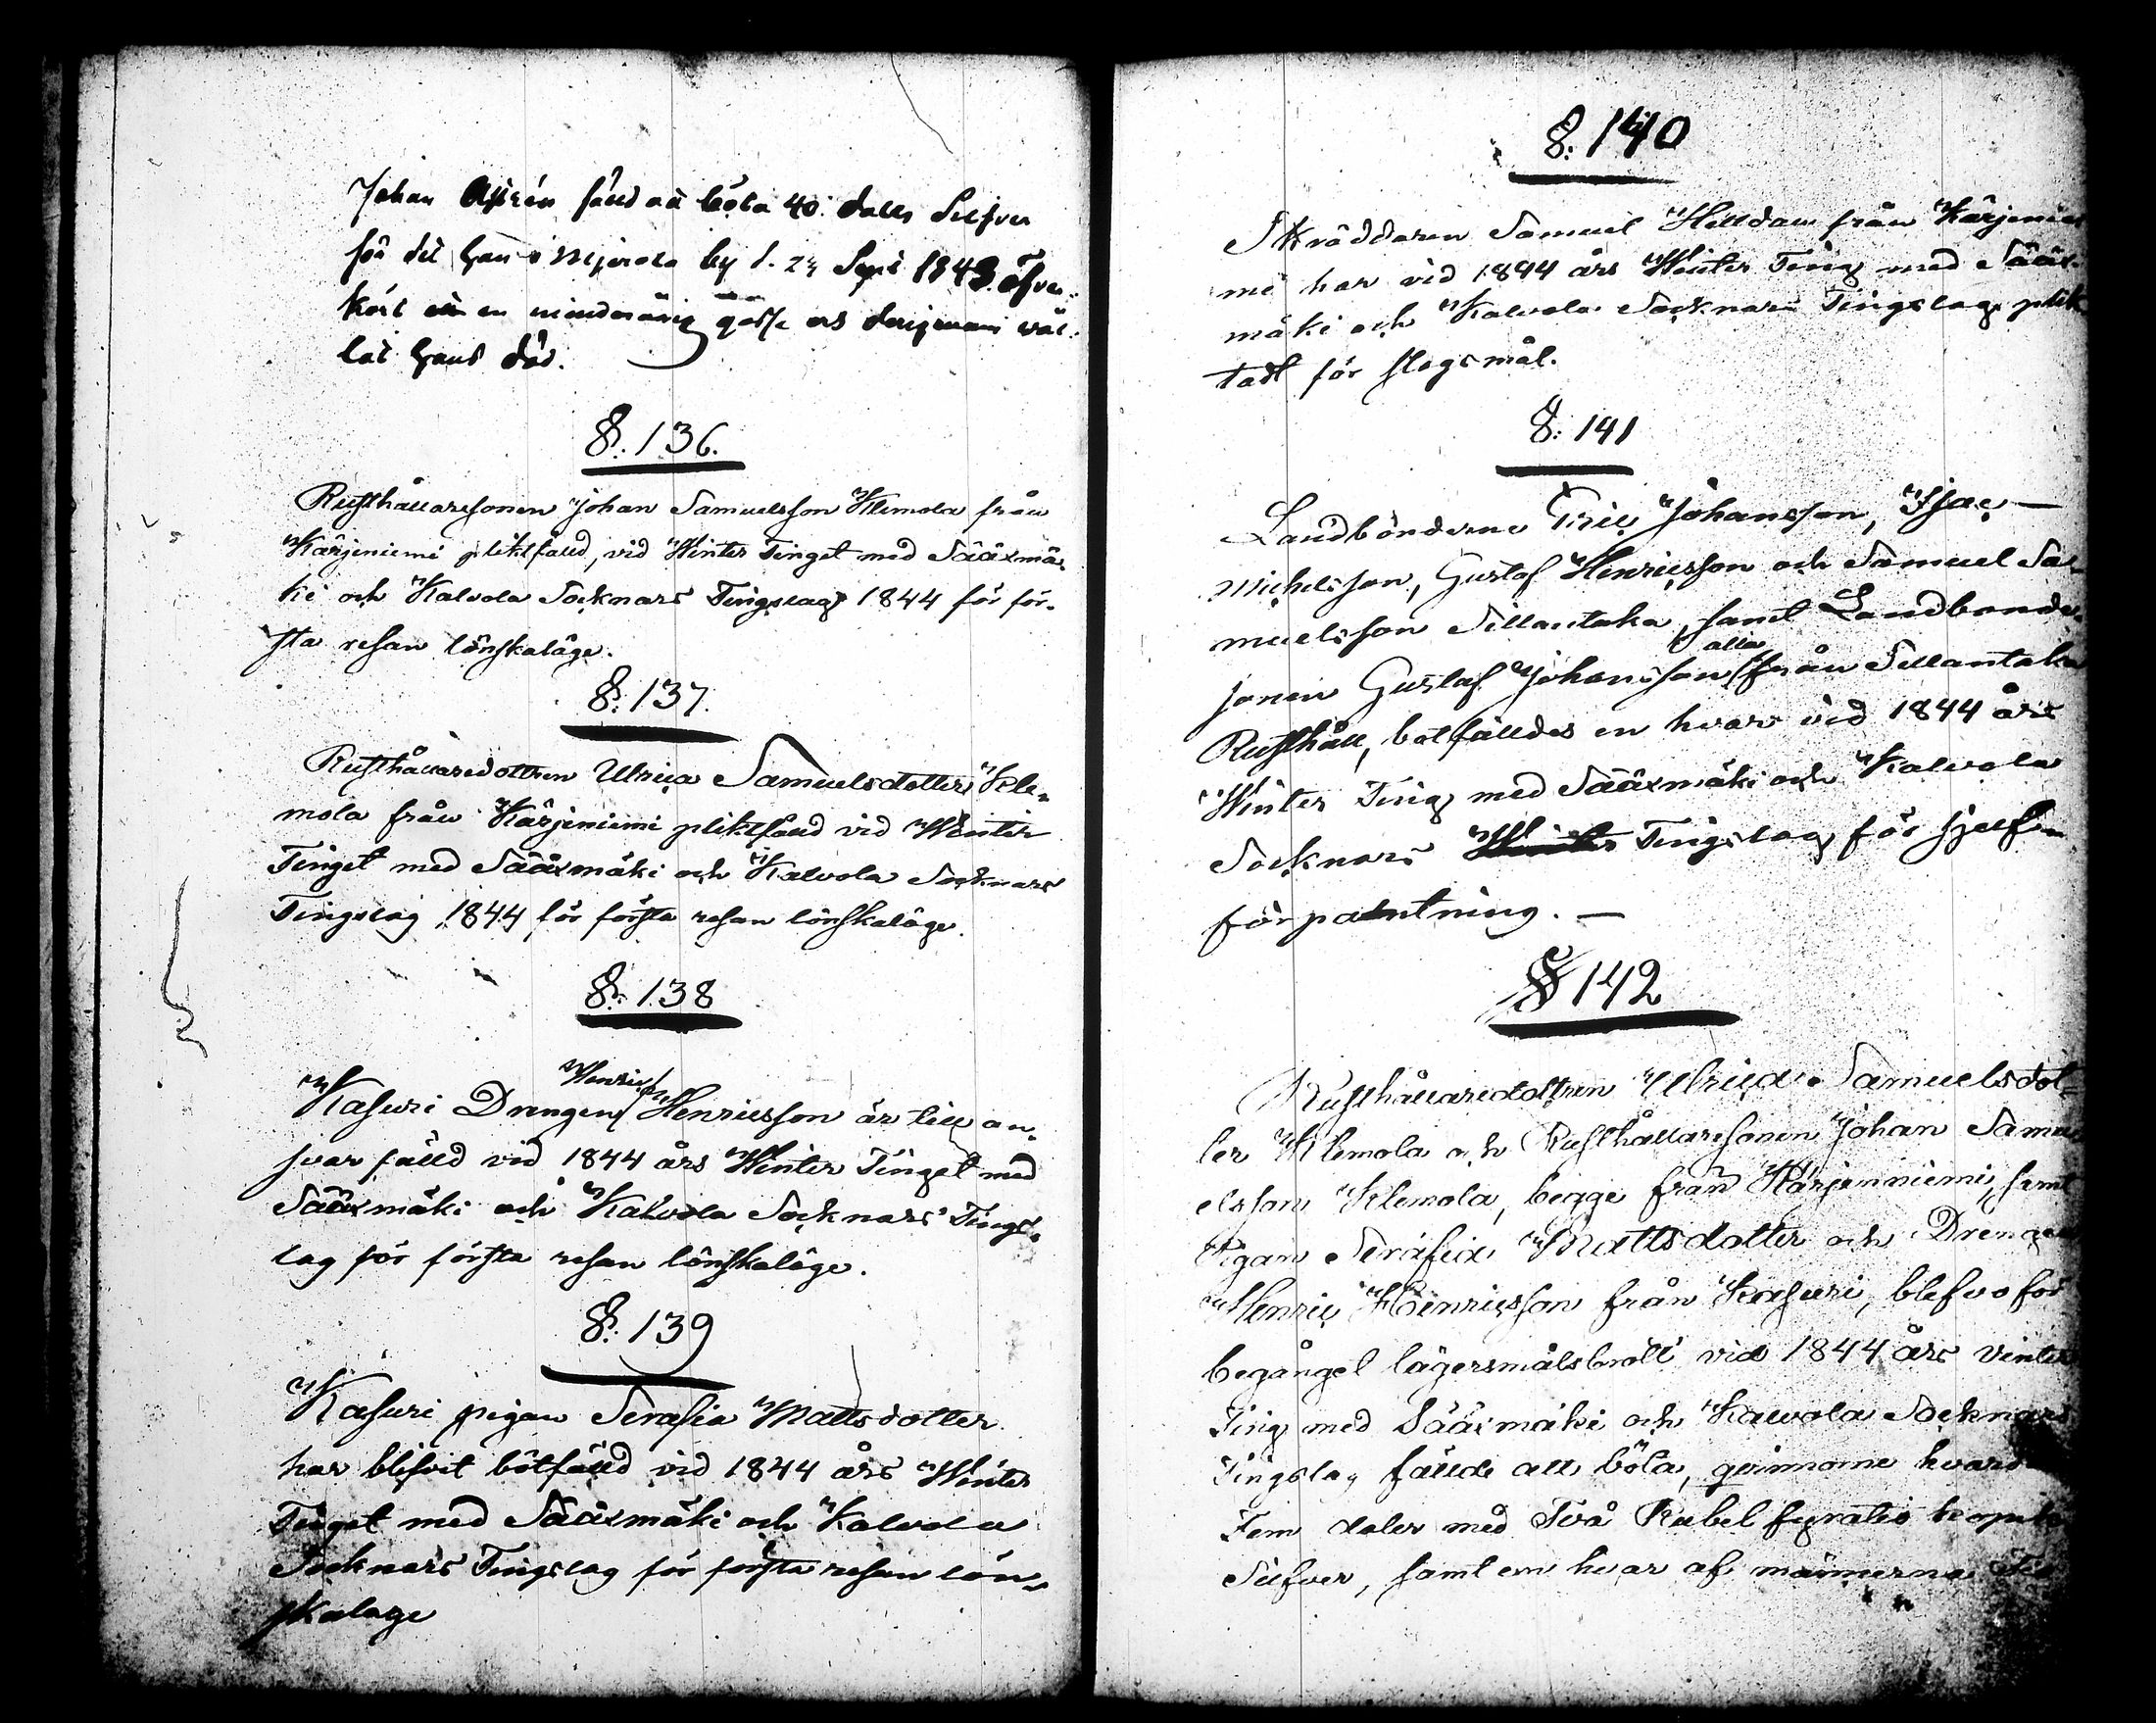 Johan fälld att böta 40 daler Silfver
för det han i by d. 24 Sept 1843 öfver-
kört en minderårig gosse och derigenom vål-
lat hans död.
§. 136.
Rusthållaresonen Johan Samuelsson Klemola från
Kärjeniemi pliktfälld, vid Winter Tinget med Sääxmä-
ki och Kalvola Socknars Tingslag 1844 för för-
sta resan lönskaläge.
§. 137.
Rusthållaredottren Ulrica Samuelsdotter Kle-
mola från Kärjeniemi pliktfälld vid Winter
Tinget med Sääxmäki och Kalvola Socknars
Tingslag 1844 för första resan lönskaläge.
§. 138
Henric
Kasuri Drengen Henricsson är till an-
svar fälld vid 1844 års Winter Tinget med
Sääxmäki och Kalvola Socknars Tings-
lag för första resan lönskaläge.
§. 139
Kasuri pigan Serafia Mattsdotter
har blifvit bötfälld vid 1844 års Winter
Tinget med Sääxmäki och Kalvola
Socknars Tingslag för första resan lön-
skalage
§. 140
Skräddaren Samuel Helldan från Kärjenie
mi har vid 1844 års Winter Ting med Sääx-
mäki och Kalvola Socknars Tingslag plik
tadt för slagsmål.
§. 141
Landbönderne Eric Johansson, Isac
Michelsson, Gustaf Henricsson och Samuel Sa-
muelsson Sillantaka, samt Landbonde-
alla
sonen Gustaf Johansson från Sillantaka
Rusthåll, botfälldes en hvar vid 1844 års
Winter Ting med Sääxmäki och Kalvola
Socknars Winter Tingslag för sjelf-
förpantning. —
§ 142
Rusthållaredottren Ulrica Samuelsdot-
ter Klemola och Rusthållaresonen Johan Samu
elsson Klemola, begge från Kärjenniemi, samt
Pigan Serafia Mattsdotter och Drengen
Henric Henricsson från Kasuri, blefvo för
begånget lägersmålsbrott vid 1844 års Vinter
Ting med Sääxmäki och Kalvola Socknars
Tingslag fällde att böta, qvinnorne hvardera
Fem daler med Två Rubel fyratio kopek
Silfver, samt en hvar af männerna Tio